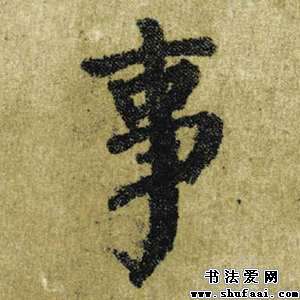 事
书法爱网
www.shufaai.com